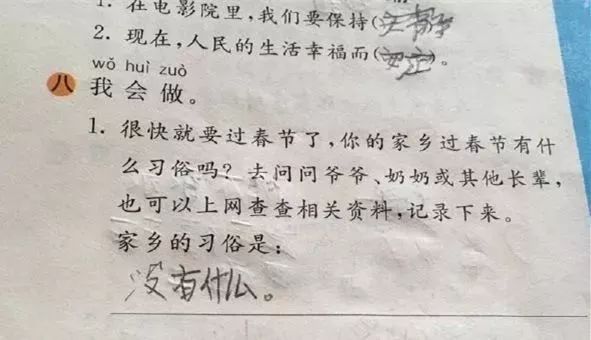 1. 在电影院里,我们要保持(安静
2. 现在,人民的生活幸福而(安定)。
wǒ huì zuò
八 我会做。
1. 很快就要过春节了,你的家乡过春节有什
么习俗吗?去问问爷爷、奶奶或其他长辈,
也可以上网查查相关资料,记录下来。
家乡的习俗是:
没有什么。